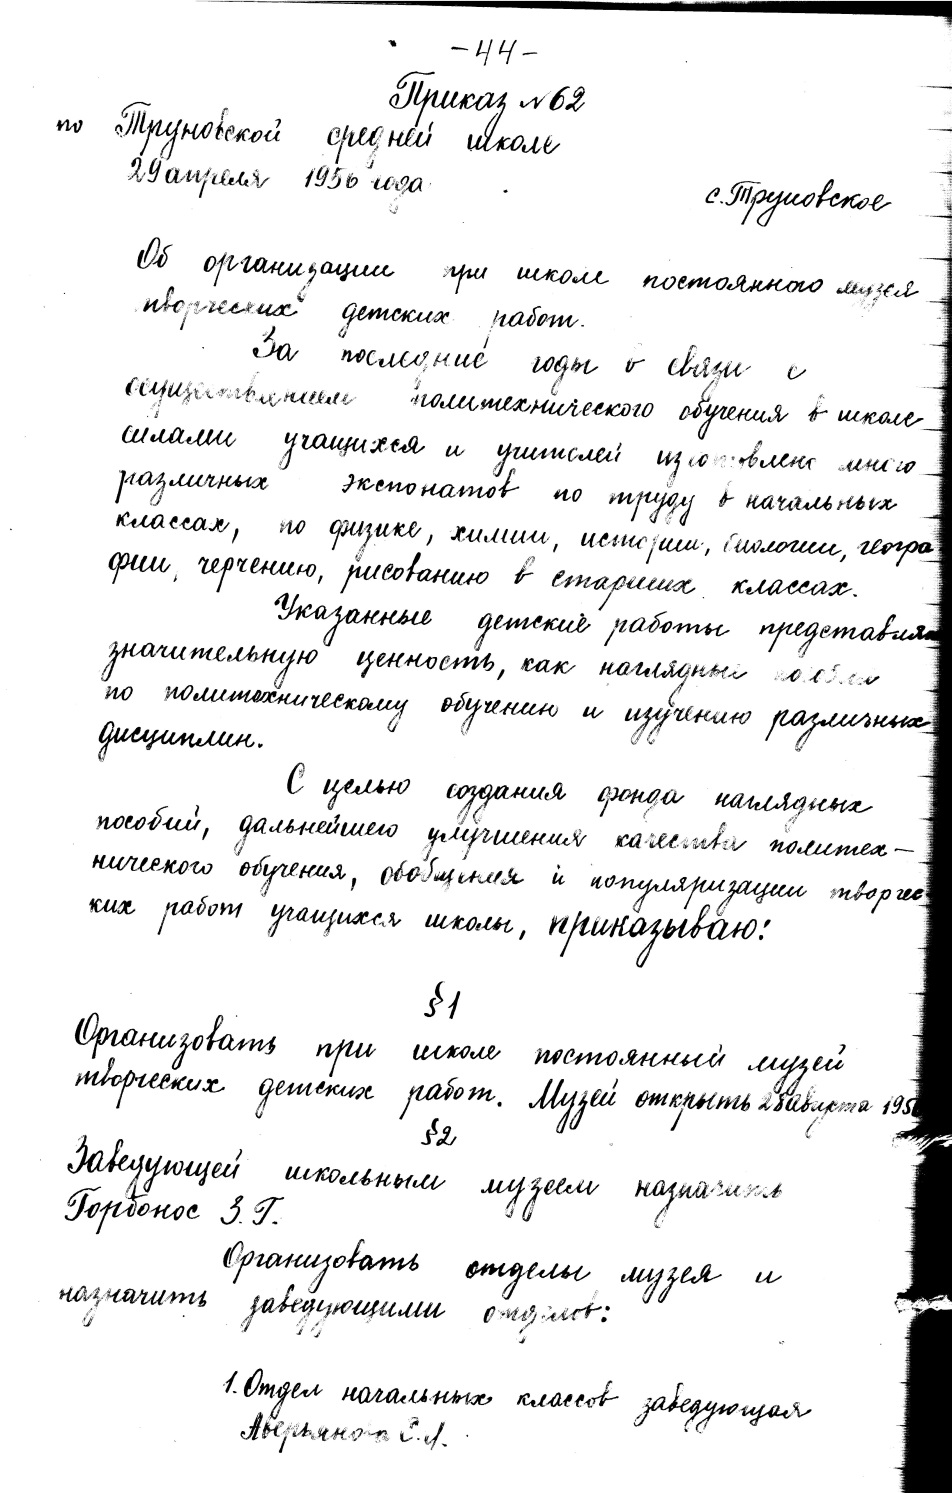 -44-
Приказ №62
по Труновской средней школе
29 апреля 1956 года
с. Труновское
Об организации при школе постоянного музея
творческих детских работ.
За последние годы в связи с
осуществлением политехнического обучения в школе
силами учащихся и учителей изготовлено много
различных экспонатов по труду в начальных
классах, по физике, химии, истории, биологии, геогра
фии, черчению, рисованию в старших классах.
Указанные детские работы представля
значительную ценность, как наглядные пособия
по политехническому обучению и изучению различных
дисциплин.
С целью создания фонда наглядных
пособий, дальнейшего улучшения качества политех-
нического обучения, обобщения и популяризации творчес
ких работ учащихся школы, приказываю:
§1
Организовать при школе постоянный музей
творческих детских работ. Музей открыть 25 августа 195
§2
Заведующей школьным музеем назначить
Горбонос З.Г.
Организовать отделы музея и
назначить заведующими отделов:
1. Отдел начальных классов заведующая
Аверьянова